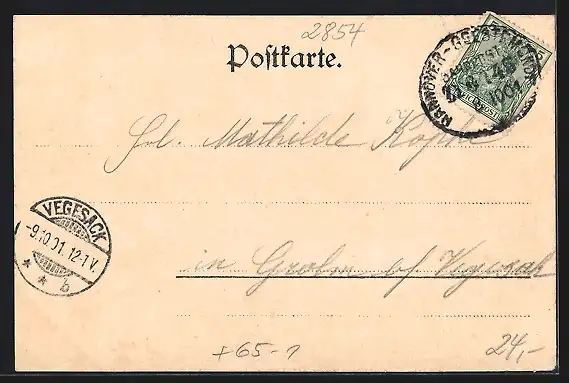 2854
Postkarte.
HANNOVER-GEESTEMÜNDE
BAHNPOST
1901
Frl. Mathilde Köpke
VEGESACK
-9.10.01.12-1V.
* * b
in Grohn b/ Vegesack
+65-1
24,-